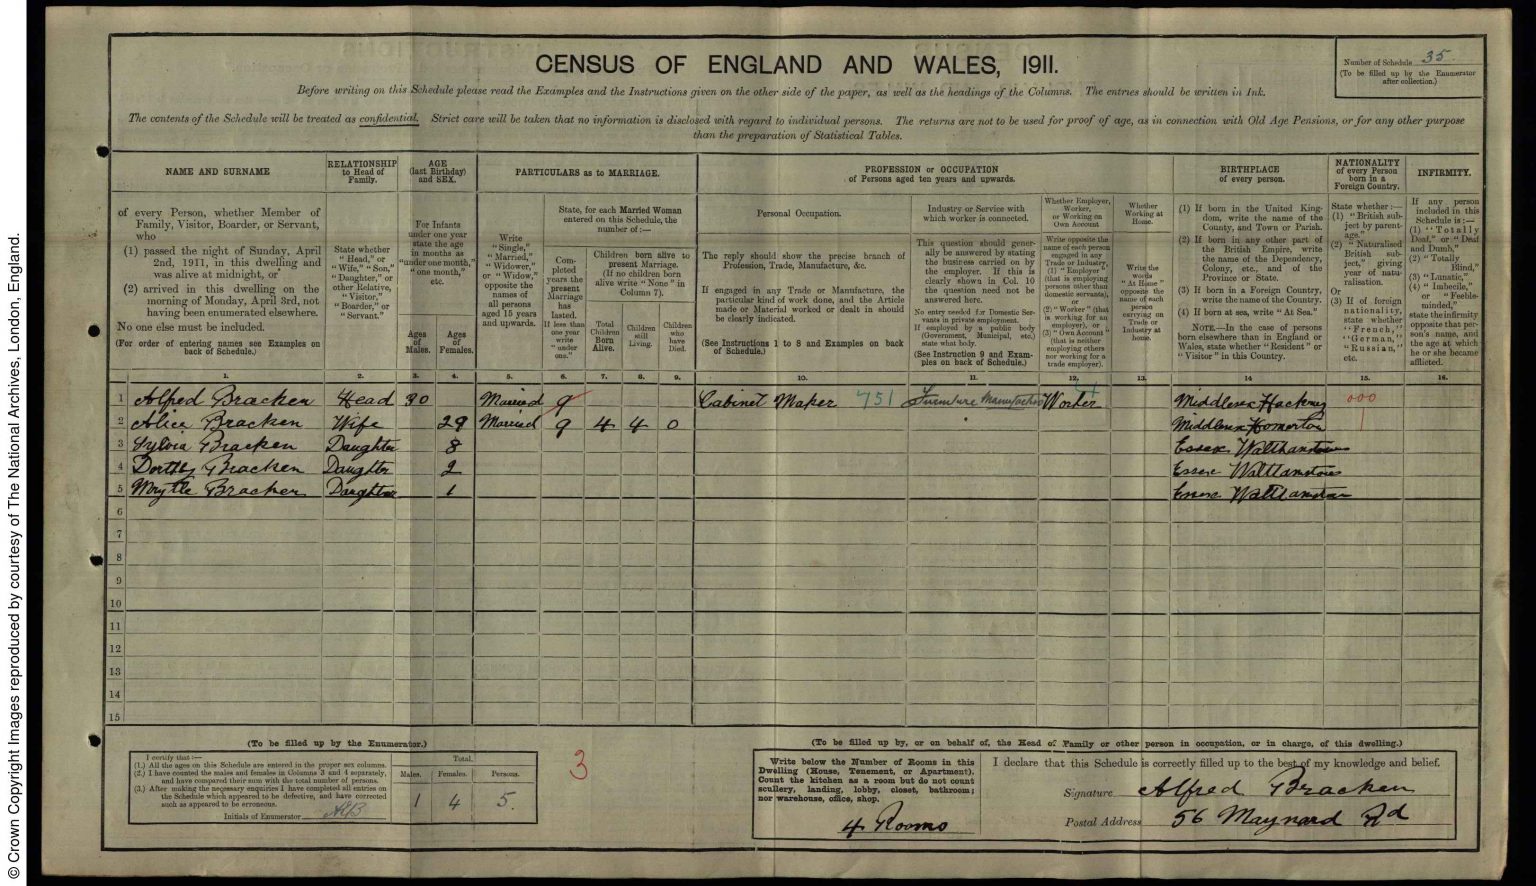 © Crown Copyright Images reproduced by courtesy of The National Archives, London, England.
CENSUS OF ENGLAND AND WALES, 1911.
Number of Schedule 35
(To be filled up by the Enumerator
after collection.)
Before writing on this Schedule please read the Examples and the Instructions given on the other side of the paper, as well as the headings of the Columns. The entries should be written in Ink.
The contents of the Schedule will be treated as confidential. Strict care will be taken that no information is disclosed with regard to individual persons. The returns are not to be used for proof of age, as in connection with Old Age Pensions, or for any other purpose
than the preparation of Statistical Tables.
NAME AND SURNAME
of every Person, whether Member of
Family, Visitor, Boarder, or Servant,
who
(1) passed the night of Sunday, April
2nd, 1911, in this dwelling and
was alive at midnight, or
(2) arrived in this dwelling on the
morning of Monday, April 3rd, not
having been enumerated elsewhere.
No one else must be included.
(For order of entering names see Examples on
back of Schedule.)
RELATIONSHIP
to Head of
Family.
State whether
"Head," or
"Wife," "Son,"
"Daughter," or
other Relative,
"Visitor,"
"Boarder," or
"Servant."
AGE
(last Birthday)
and SEX.
For Infants
under one year
state the age
in months as
"under one month,"
"one month,"
etc.
Ages
of
Males.
Ages
of
Females.
PARTICULARS as to MARRIAGE.
Write
"Single,"
"Married,"
"Widower,"
or "Widow,"
opposite the
names of
all persons
aged 15 years
and upwards.
State, for each Married Woman
entered on this Schedule, the
number of:—
Com-
pleted
years the
present
Marriage
has
lasted.
If less than
one year
write
"under
one."
Children born alive to
present Marriage.
(If no children born
alive write "None" in
Column 7).
Total
Children
Born
Alive.
Children
still
Living.
Children
who
have
Died.
PROFESSION or OCCUPATION
of Persons aged ten years and upwards.
Personal Occupation.
The reply should show the precise branch of
Profession, Trade, Manufacture, &c.
If engaged in any Trade or Manufacture, the
particular kind of work done, and the Article
made or Material worked or dealt in should
be clearly indicated.
(See Instructions 1 to 8 and Examples on back
of Schedule.)
Industry or Service with
which worker is connected.
This question should gener-
ally be answered by stating
the business carried on by
the employer. If this is
clearly shown in Col. 10
the question need not be
answered here.
No entry needed for Domestic Ser-
vants in private employment.
If employed by a public body
(Government, Municipal, etc.)
state what body.
(See Instruction 9 and Exam-
ples on back of Schedule.)
Whether Employer,
Worker,
or Working on
Own Account
Write opposite the
name of each person
engaged in any
Trade or Industry,
(1) "Employer"
(that is employing
persons other than
domestic servants),
or
(2) "Worker" (that
is working for an
employer), or
(3) "Own Account"
(that is neither
employing others
nor working for a
trade employer).
Whether
Working at
Home.
Write the
words
"At Home"
opposite the
name of each
person
carrying on
Trade or
Industry at
home.
BIRTHPLACE
of every person.
(1) If born in the United King-
dom, write the name of the
County, and Town or Parish.
(2) If born in any other part of
the British Empire, write
the name of the Dependency,
Colony, etc., and of the
Province or State.
(3) If born in a Foreign Country,
write the name of the Country.
(4) If born at sea, write "At Sea."
NOTE.—In the case of persons
born elsewhere than in England or
Wales, state whether "Resident" or
"Visitor" in this Country.
NATIONALITY
of every Person
born in a
Foreign Country.
State whether:—
(1) "British sub-
ject by parent-
age."
(2) "Naturalised
British sub-
ject," giving
year of natu-
ralisation.
Or
(3) If of foreign
nationality,
state whether
"French,"
"German,"
"Russian,"
etc.
INFIRMITY.
If any person
included in this
Schedule is:—
(1) "Totally
Deaf," or "Deaf
and Dumb,"
(2) "Totally
Blind,"
(3) "Lunatic,"
(4) "Imbecile,"
or "Feeble-
minded,"
state the infirmity
opposite that per-
son's name, and
the age at which
he or she became
afflicted.
1. 2. 3. 4. 5. 6. 7. 8. 9. 10. 11. 12. 13. 14 15. 16.
1 Alfred Bracken Head 30 Married 9 Cabinet Maker 751 Furniture Manufacture Worker Middlesex Hackney 000
2 Alice Bracken Wife 29 Married 9 4 4 0 Middlesex Homerton
3 Sylvia Bracken Daughter 8 Essex Walthamstow
4 Dorthy Bracken Daughter 2 Essex Walthamstow
5 Myrtle Bracken Daughter 1 Essex Walthamstow
6
7
8
9
10
11
12
13
14
15
(To be filled up by the Enumerator.)
I certify that:—
(1.) All the ages on this Schedule are entered in the proper sex columns.
(2.) I have counted the males and females in Columns 3 and 4 separately,
and have compared their sum with the total number of persons.
(3.) After making the necessary enquiries I have completed all entries on
the Schedule which appeared to be defective, and have corrected
such as appeared to be erroneous.
Initials of Enumerator
Total.
Males. Females. Persons.
1 4 5.
3
(To be filled up by, or on behalf of, the Head of Family or other person in occupation, or in charge, of this dwelling.)
Write below the Number of Rooms in this
Dwelling (House, Tenement, or Apartment).
Count the kitchen as a room but do not count
scullery, landing, lobby, closet, bathroom;
nor warehouse, office, shop.
4 Rooms
I declare that this Schedule is correctly filled up to the best of my knowledge and belief.
Signature Alfred Bracken
Postal Address 56 Maynard Rd